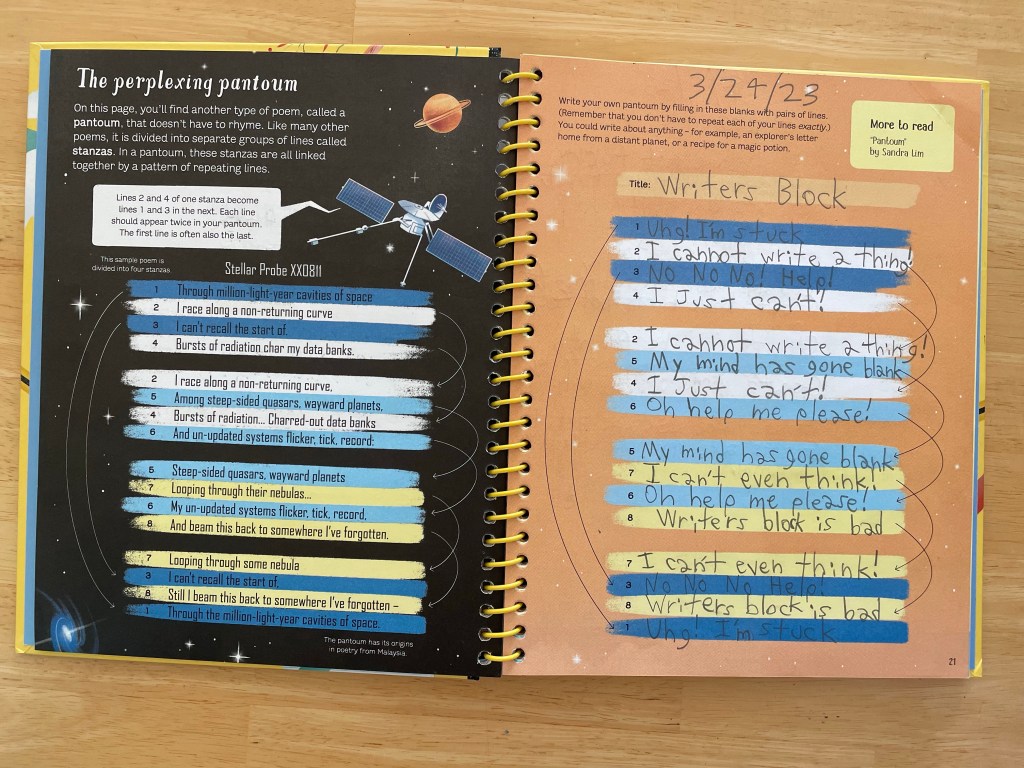 The perplexing pantoum
On this page, you'll find another type of poem, called a
pantoum, that doesn't have to rhyme. Like many other
poems, it is divided into separate groups of lines called
stanzas. In a pantoum, these stanzas are all linked
together by a pattern of repeating lines.
Lines 2 and 4 of one stanza become
lines 1 and 3 in the next. Each line
should appear twice in your pantoum.
The first line is often also the last.
This sample poem is
divided into four stanzas.
Stellar Probe XX0811
1 Through million-light-year cavities of space
2 I race along a non-returning curve
3 I can't recall the start of.
4 Bursts of radiation char my data banks.
2 I race along a non-returning curve,
5 Among steep-sided quasars, wayward planets,
4 Bursts of radiation... Charred-out data banks
6 And un-updated systems flicker, tick, record:
5 Steep-sided quasars, wayward planets
7 Looping through their nebulas...
6 My un-updated systems flicker, tick, record,
8 And beam this back to somewhere I've forgotten.
7 Looping through some nebula
3 I can't recall the start of,
8 Still I beam this back to somewhere I've forgotten –
1 Through the million-light-year cavities of space.
The pantoum has its origins
in poetry from Malaysia.
3/24/23
Write your own pantoum by filling in these blanks with pairs of lines.
(Remember that you don't have to repeat each of your lines exactly.)
You could write about anything – for example, an explorer's letter
home from a distant planet, or a recipe for a magic potion.
More to read
"Pantoum"
by Sandra Lim
Title: Writers Block
1 Uhg! I'm stuck
2 I cannot write a thing!
3 No No No! Help!
4 I Just can't!
2 I cannot write a thing!
5 My mind has gone blank
4 I Just can't!
6 Oh help me please!
5 My mind has gone blank
7 I can't even think!
6 Oh help me please!
8 Writers block is bad
7 I can't even think!
3 No No No Help!
8 Writers block is bad
1 Uhg! I'm stuck
21